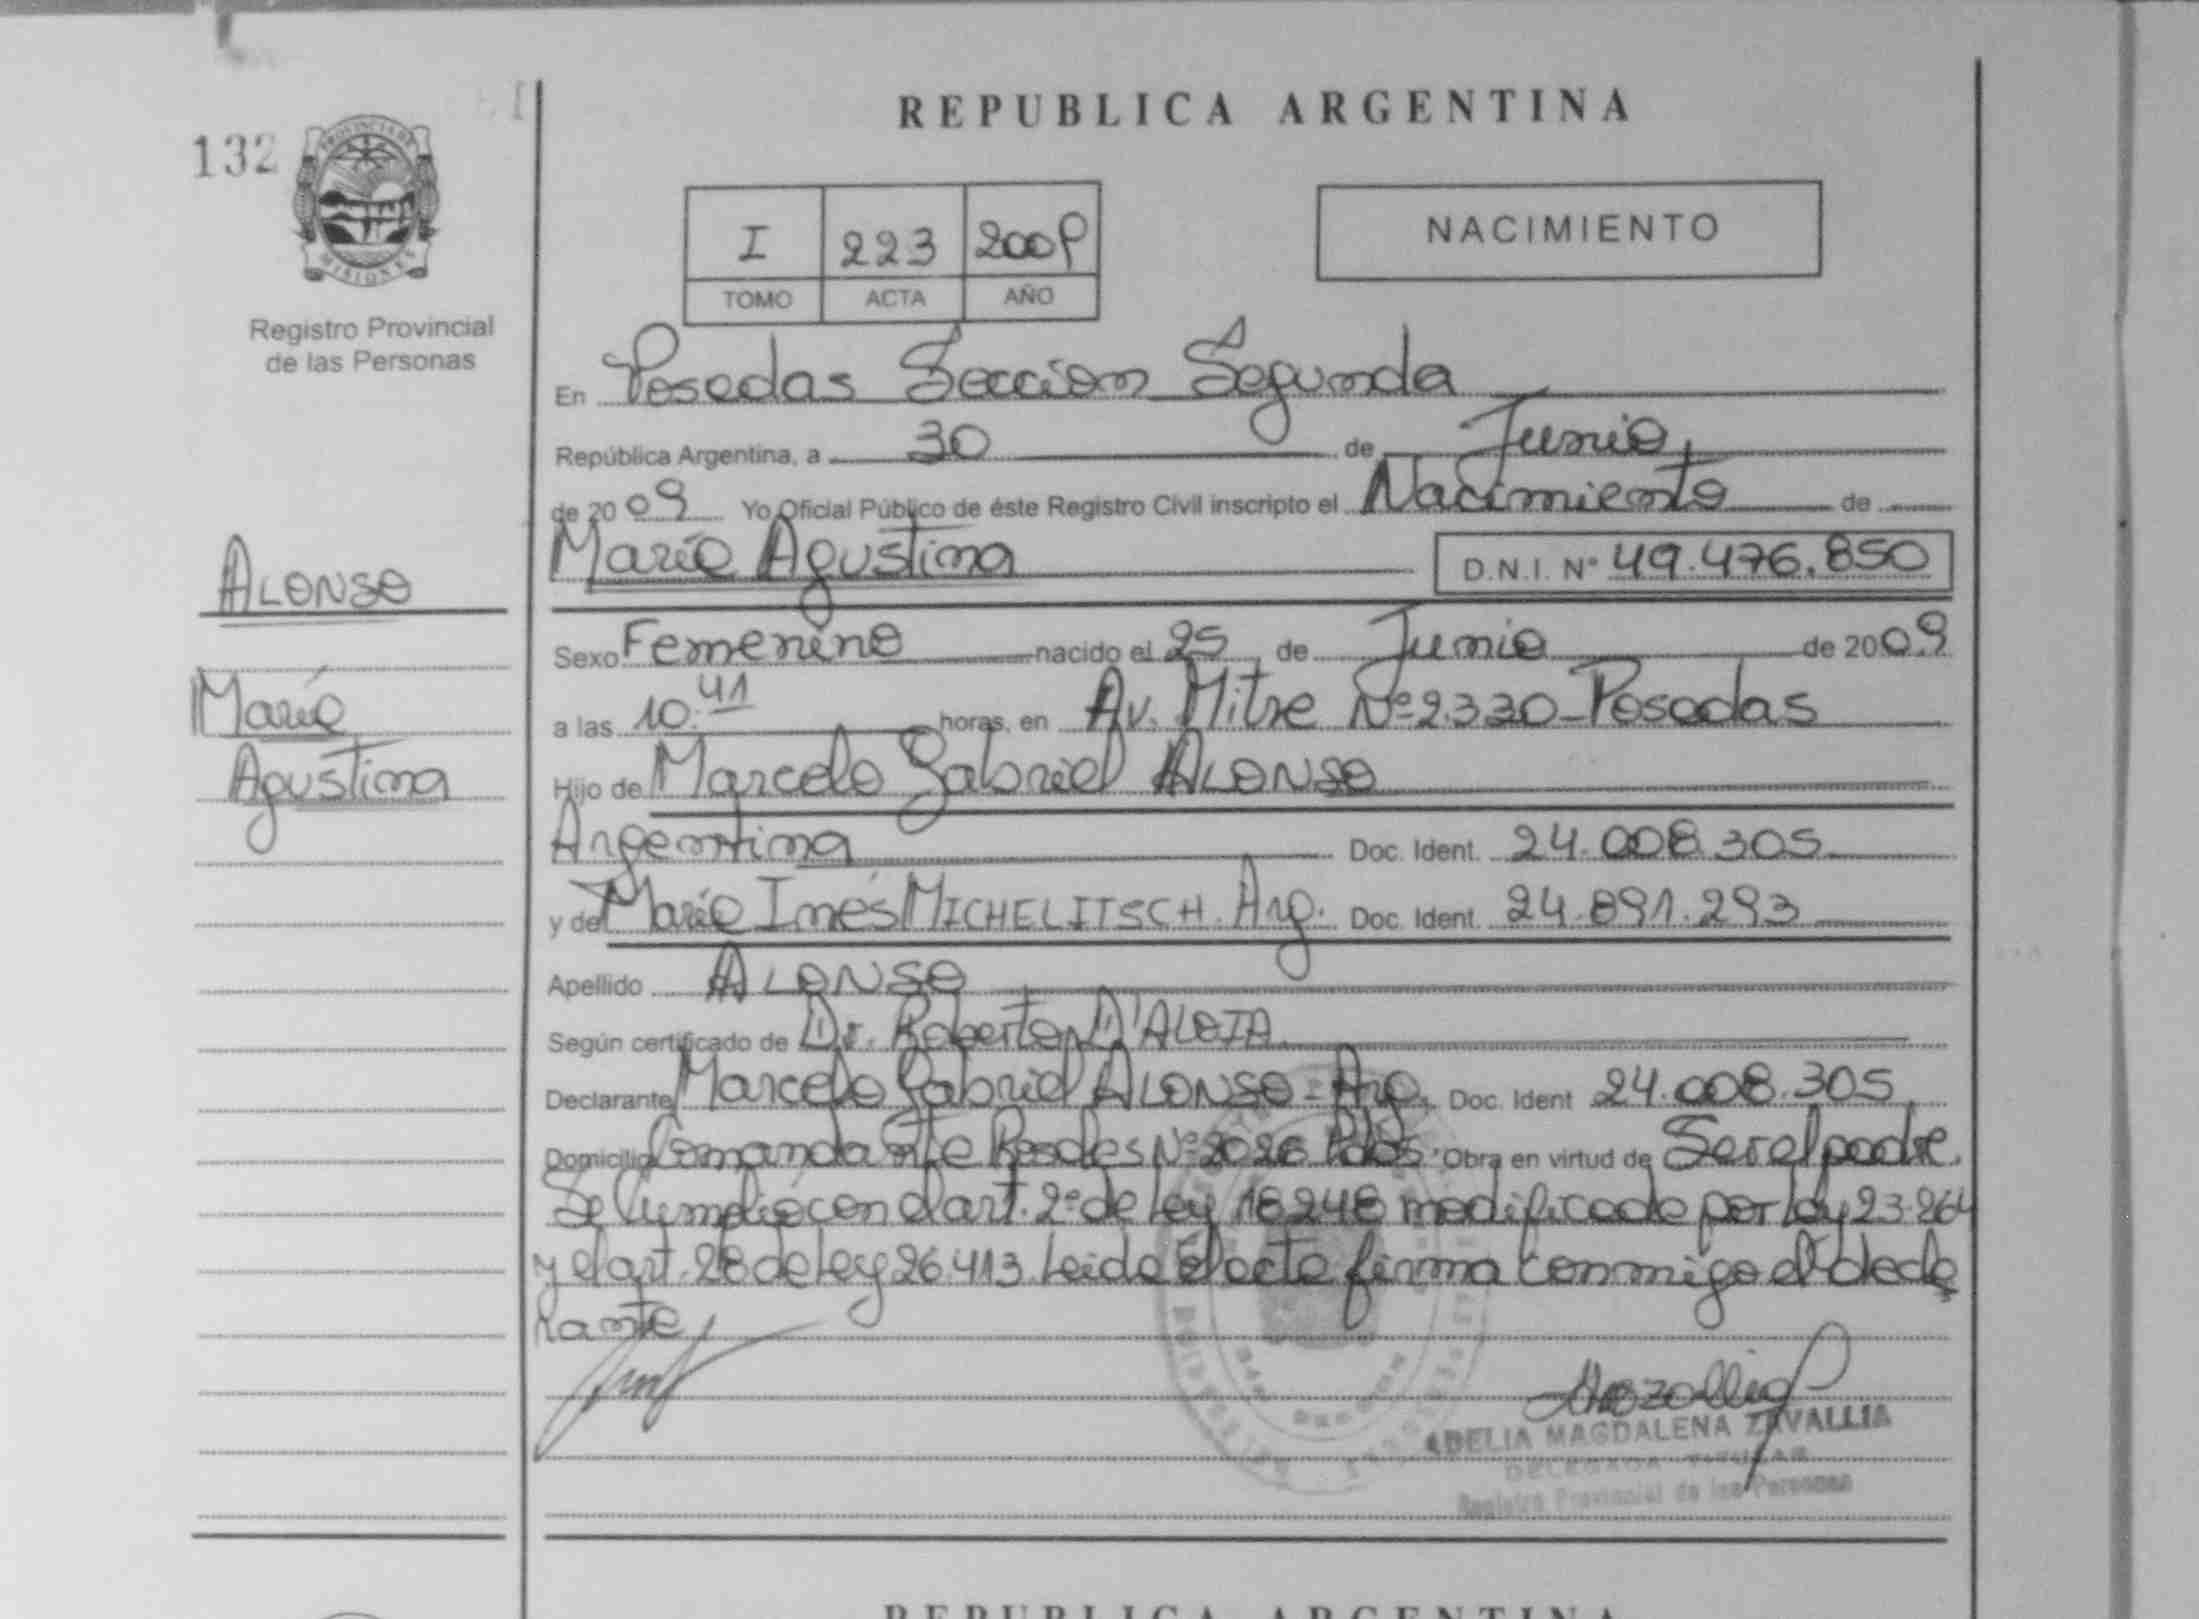 REPUBLICA ARGENTINA
132
PROVINCIA DE
MISIONES
Registro Provincial
de las Personas
I 223 2009
TOMO ACTA AÑO
NACIMIENTO
En Posadas Sección Segunda
República Argentina, a 30 de Junio,
de 2009 Yo Oficial Público de éste Registro Civil inscripto el Nacimiento de
María Agustina D.N.I. Nº 49.476.850
ALONSO
María
Agustina
Sexo Femenino nacido el 25 de Junio de 2009
a las 10:41 horas, en Av. Mitre Nº 2.330-Posadas
Hijo de Marcelo Gabriel ALONSO
Argentina Doc. Ident. 24.008.305
y de María Inés MICHELITSCH. Arg. Doc. Ident. 24.891.293
Apellido ALONSO
Según certificado de Dr. Roberto D'ALOIA
Declarante Marcelo Gabriel ALONSO - Arg. Doc. Ident 24.008.305
Domicilio Nº 2026 Pdas. Obra en virtud de Ser el padre.
Se Cumplió con el art. 2º de ley 18248 modificado por ley 23.264
y el art. 28 de ley 26.413. Leida el acta firma conmigo el decla
rante
ADELIA MAGDALENA ZAVALLIA
DELEGADA TITULAR
Registro Provincial de las Personas
REPUBLICA ARGENTINA